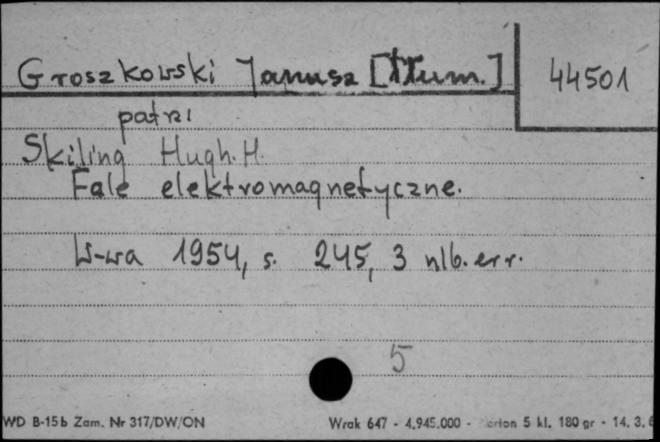 Groszkowski Janusz [tłum.]
44501
patrz
Skiling Hugh. H.
Fale elektromagnetyczne.
W-wa 1954, s. 245, 3 nlb. err.
5
WD B-15b Zam. Nr 317/DW/ON
Wrak 647 - 4.945.000 - 5 kl. 180 gr - 14. 3.